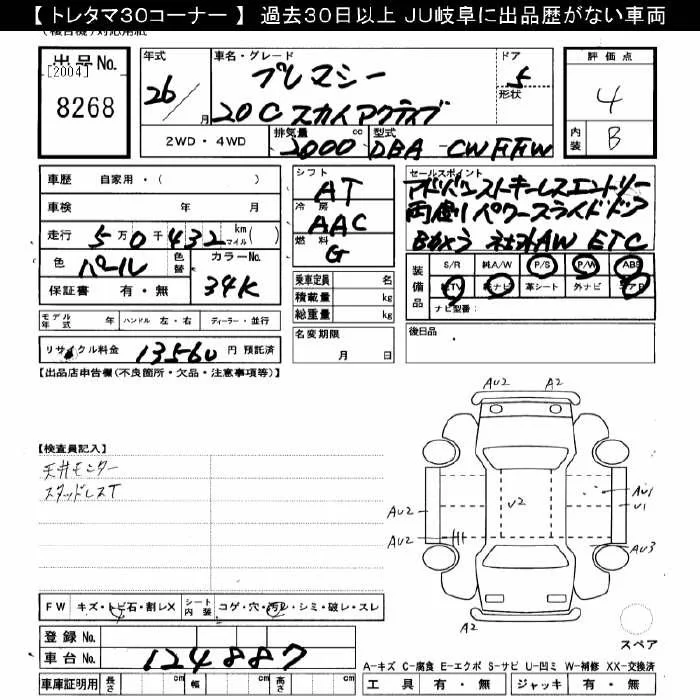 【 トレタマ30コーナー 】 過去30日以上 JU岐阜に出品歴がない車両
出品No. [2004] 8268
年式 26年 月
車名・グレード プレマシー
20C スカイアクティブ
ドア 5
形状
評価点 4
内装 B
2WD・4WD
排気量 2000 cc
型式 DBA-CWFFW
車歴 自家用・( )
車検 年 月
走行 5万0千432 km マイル( )
色 パール 色替 カラーNo. 34K
保証書 有・無
シフト AT
冷房 AAC
燃料 G
乗車定員 名
積載量 kg
総重量 kg
セールスポイント
アドバンストキーレスエントリー
両側パワースライドドア
Bカメラ 社外AW ETC
装備品
S/R 純A/W P/S P/W ABS
純TV 純ナビ 革シート 外ナビ エアB
ナビ型番:
モデル年式 年 ハンドル 左・右 ディーラー・並行
リサイクル料金 13560 円 預託済
名変期限 月 日
後日品
【出品店申告欄(不良箇所・欠品・注意事項等)】
【検査員記入】
天井モニター
スタッドレスT
AU2 A2
AU2 U2 AU1
U1
AU2 AU3
A2
スペア
FW キズ・トビ石・割レX シート内装 コゲ・穴・汚レ・シミ・破レ・スレ
登録No.
車台No. 124887
車庫証明用 長さ cm 幅 cm 高さ cm
A-キズ C-腐食 E-エクボ S-サビ U-凹ミ W-補修 XX-交換済
工具 有・無 ジャッキ 有・無